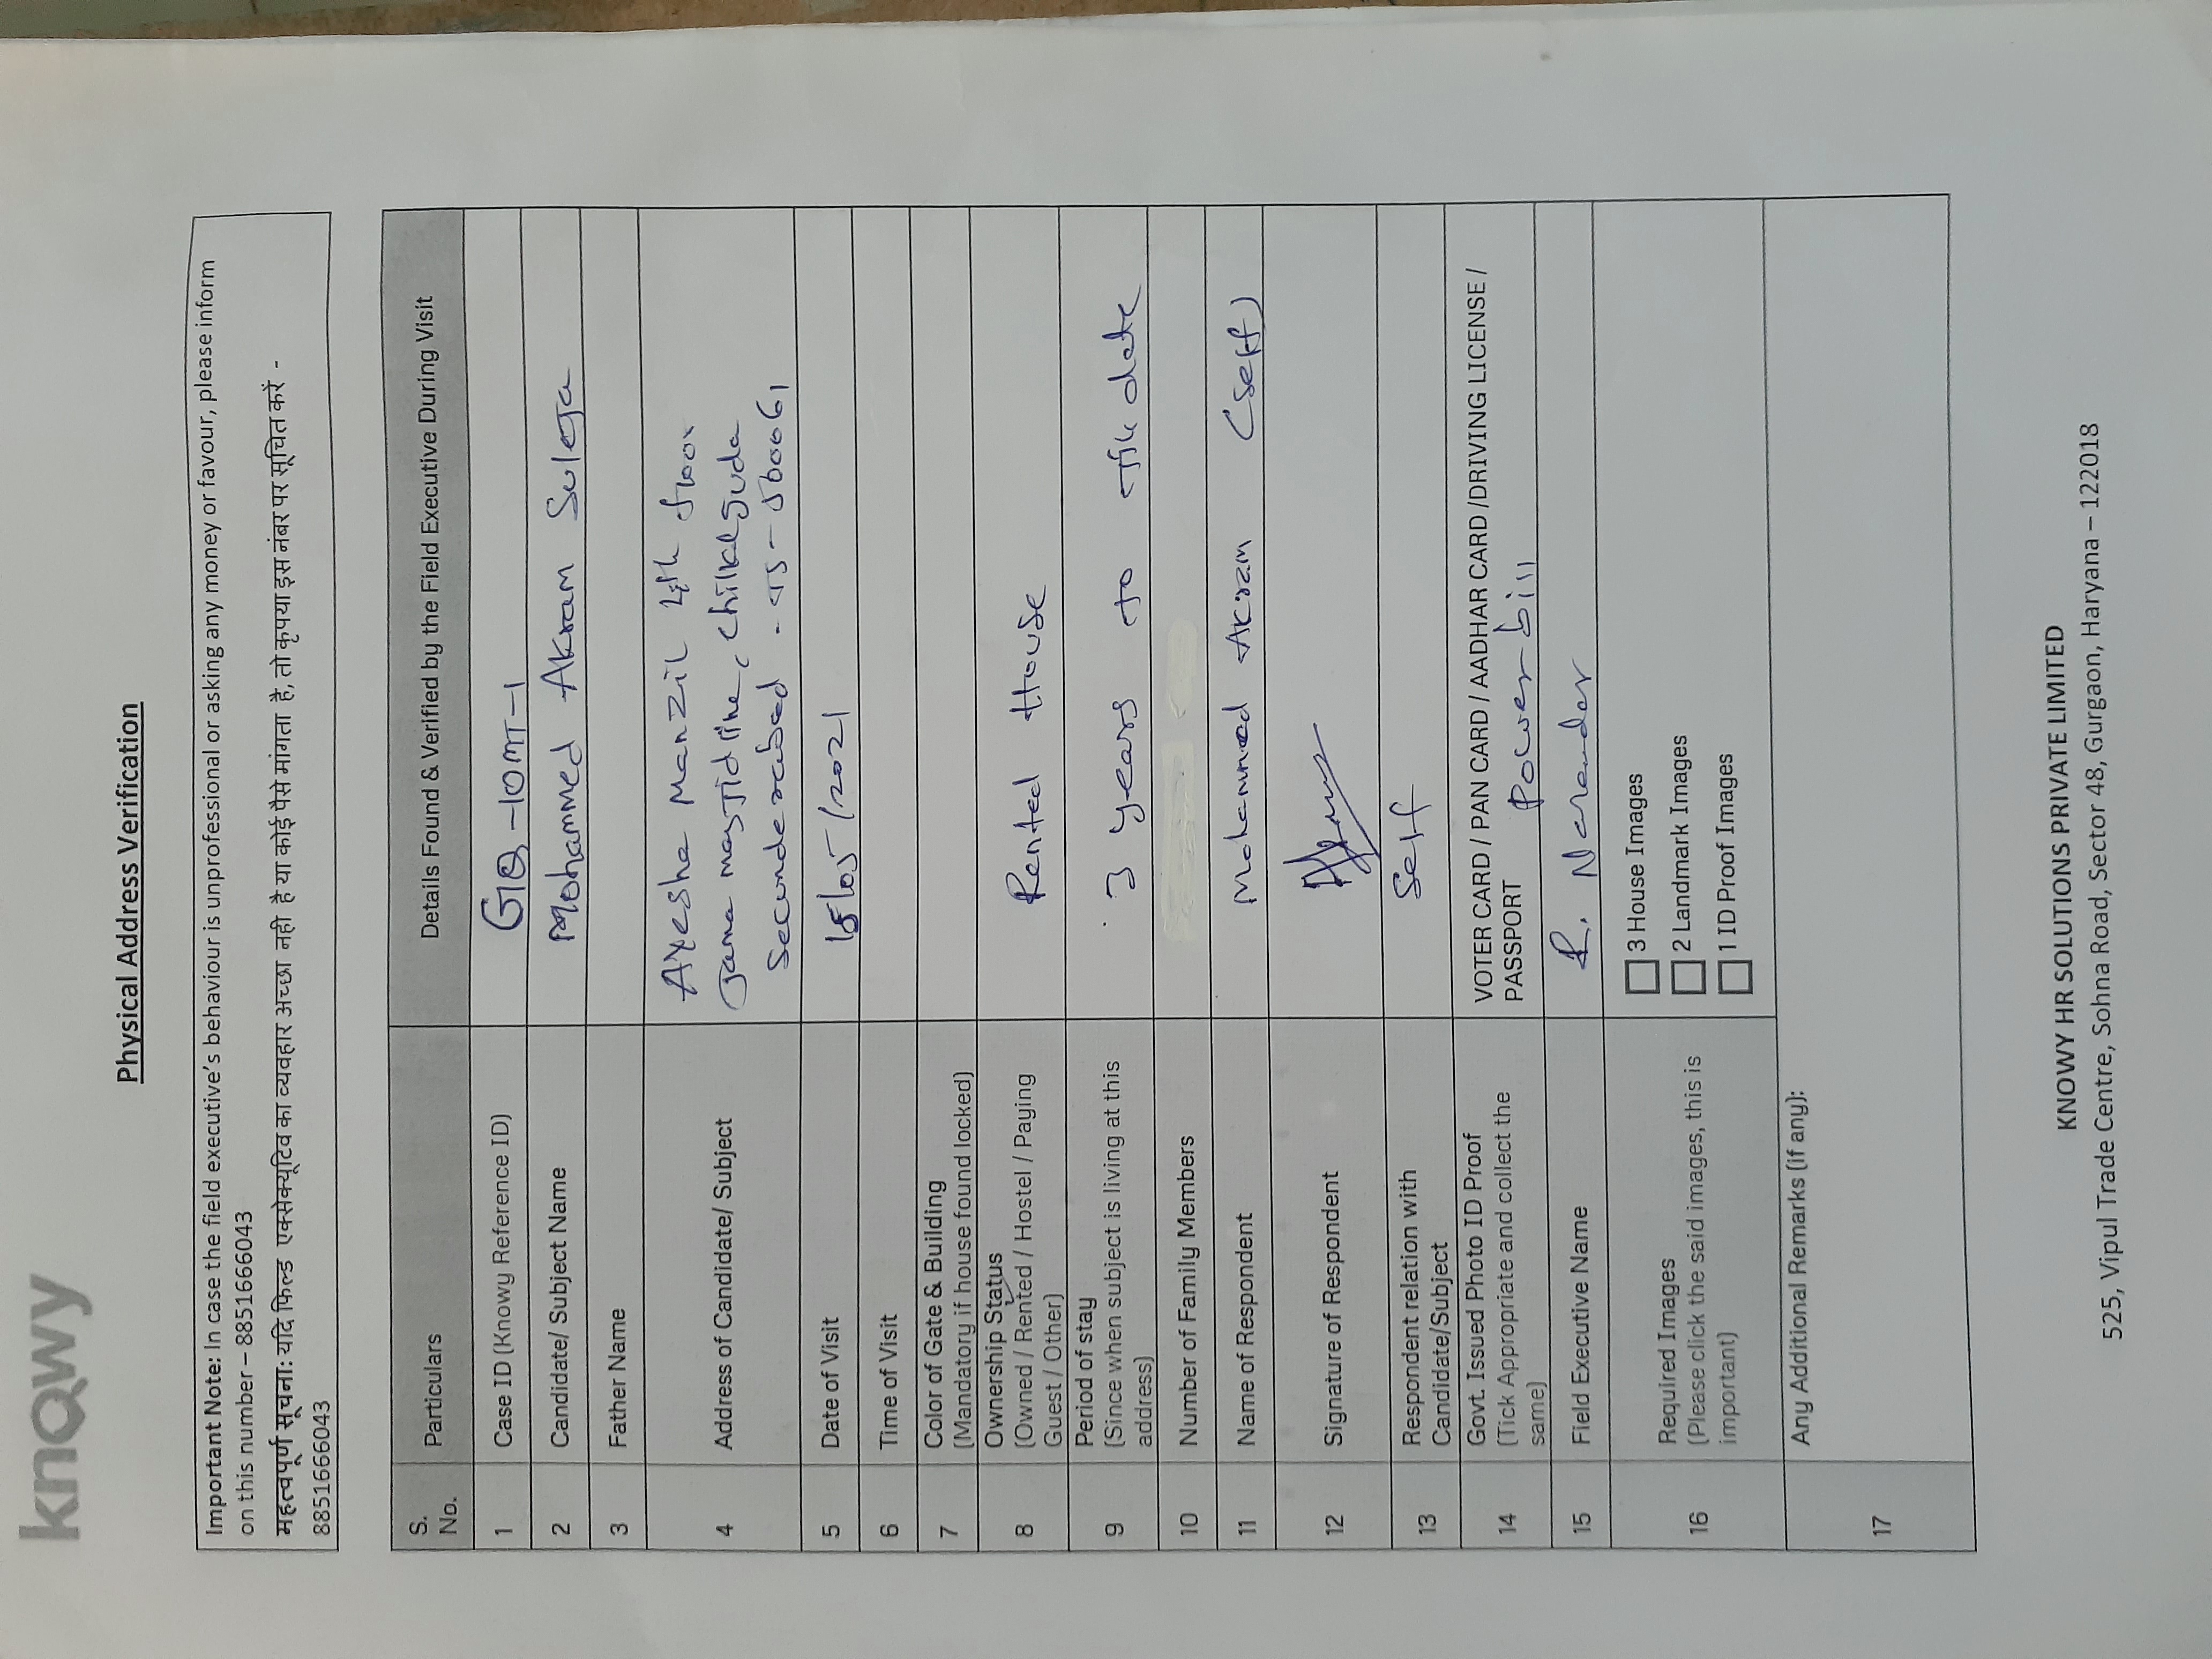 knowy
Physical Address Verification
Important Note: In case the field executive's behaviour is unprofessional or asking any money or favour, please inform
on this number – 8851666043
महत्वपूर्ण सूचना: यदि फिल्ड एक्सेक्यूटिव का व्यवहार अच्छा नही है या कोई पैसे मांगता है, तो कृपया इस नंबर पर सूचित करें -
8851666043
S. No. Particulars Details Found & Verified by the Field Executive During Visit
1 Case ID (Knowy Reference ID) GQ-10MT-1
2 Candidate/ Subject Name Mohammed Akram Suleja
3 Father Name
4 Address of Candidate/ Subject
Ayesha Manzil 4th floor
Jama masjid line, Chilkalguda
Secunderabad - TS - 500061
5 Date of Visit /05/2021
6 Time of Visit
7 Color of Gate & Building
(Mandatory if house found locked)
8 Ownership Status
(Owned / Rented / Hostel / Paying
Guest / Other)
Rented House
9 Period of stay
(Since when subject is living at this
address)
3 years to till date
10 Number of Family Members
11 Name of Respondent Mohammed Akram (self)
12 Signature of Respondent
13 Respondent relation with
Candidate/Subject
Self
14 Govt. Issued Photo ID Proof
(Tick Appropriate and collect the
same)
VOTER CARD / PAN CARD / AADHAR CARD /DRIVING LICENSE /
PASSPORT Power bill
15 Field Executive Name R. Narender
16 Required Images
(Please click the said images, this is
important)
3 House Images
2 Landmark Images
1 ID Proof Images
17 Any Additional Remarks (if any):
KNOWY HR SOLUTIONS PRIVATE LIMITED
525, Vipul Trade Centre, Sohna Road, Sector 48, Gurgaon, Haryana – 122018